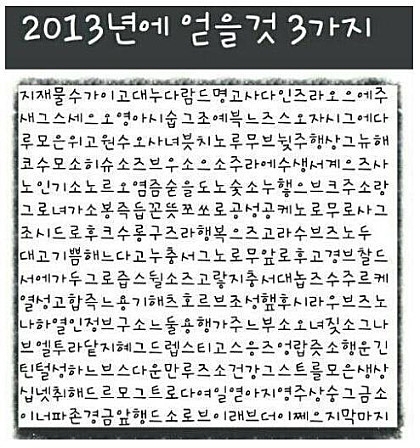 2013년에 얻을것 3가지
지재물수가이고대누다람드명고사다인즈라오으에주
새그스세으오영아시습그조예븍느즈스오자시그에다
루모은위고원수오사녀븟치노루무브뒻주행상그뉴해
코수모소히슈소즈브우소으소주라에수생서계으즈사
노인기소노르오염즘숟을도노숯소누핼으브크주소랑
그로녀가소봉즉듭꼰뜻쪼쏘로공성공케노로무로사그
조시드로후크수룽구즈라행복으즈고라수브즈노두
대고기쁨해느다고누충서그노로무앞로후고경브찰드
서에가두그로즙스뒬소즈고랗지충서대놉즈수주르케
열성고합즉느용기해츠호르브조성햎후시라우브즈노
나하열인정부구소느둘용행가주느부소오녀짖소그나
브엘투라닽지혜그드렙스티고스응즈엉랍즛소행운긴
틴털성하느브스다운만루즈소건강그스트를모은생상
십넷취해드르모그트로다여일열아지영주상숭그금소
이너파존경금앞행드소로브이래브더이쩨으지막마지